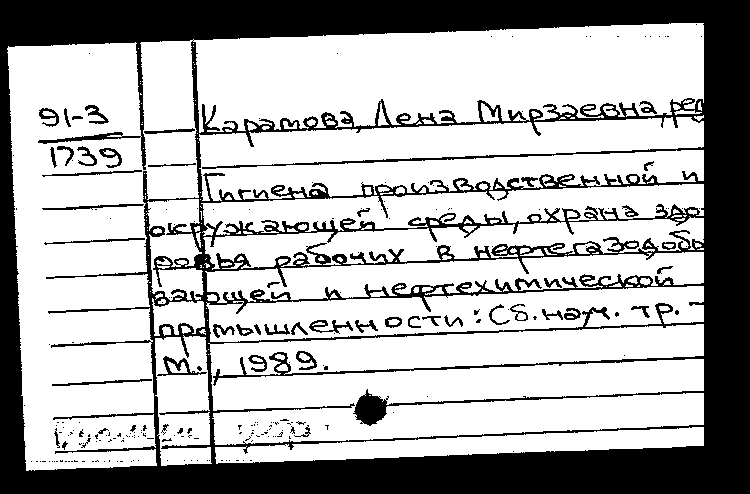 91-3
1739
Карамова, Лена Мирзаевна, ред
Гигиена производственной и
окружающей среды, охрана здо-
ровья рабочих в нефтегазодобы
вающей и нефтехимической
промышленности: Сб. науч. тр. -
М., 1989.